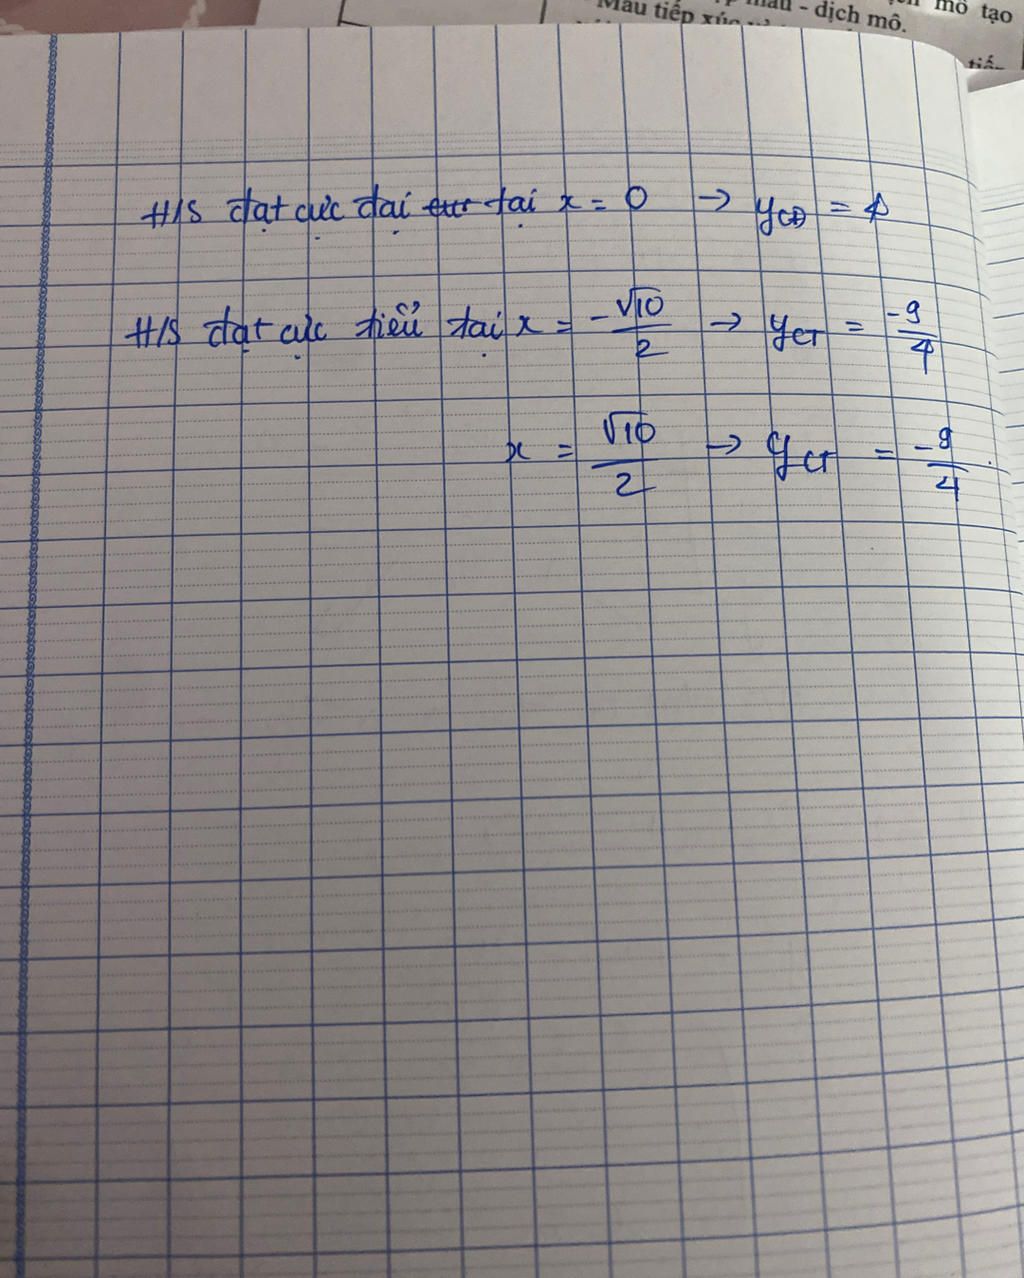 mô tạo
Máu tiếp xúc
máu - dịch mô.
tiế-
H/S đạt cực đại tại x = 0 → yCĐ = 4
H/S đạt cực tiểu tại x = -√10/2 → yCT = -9/4
x = √10/2 → yCT = -9/4